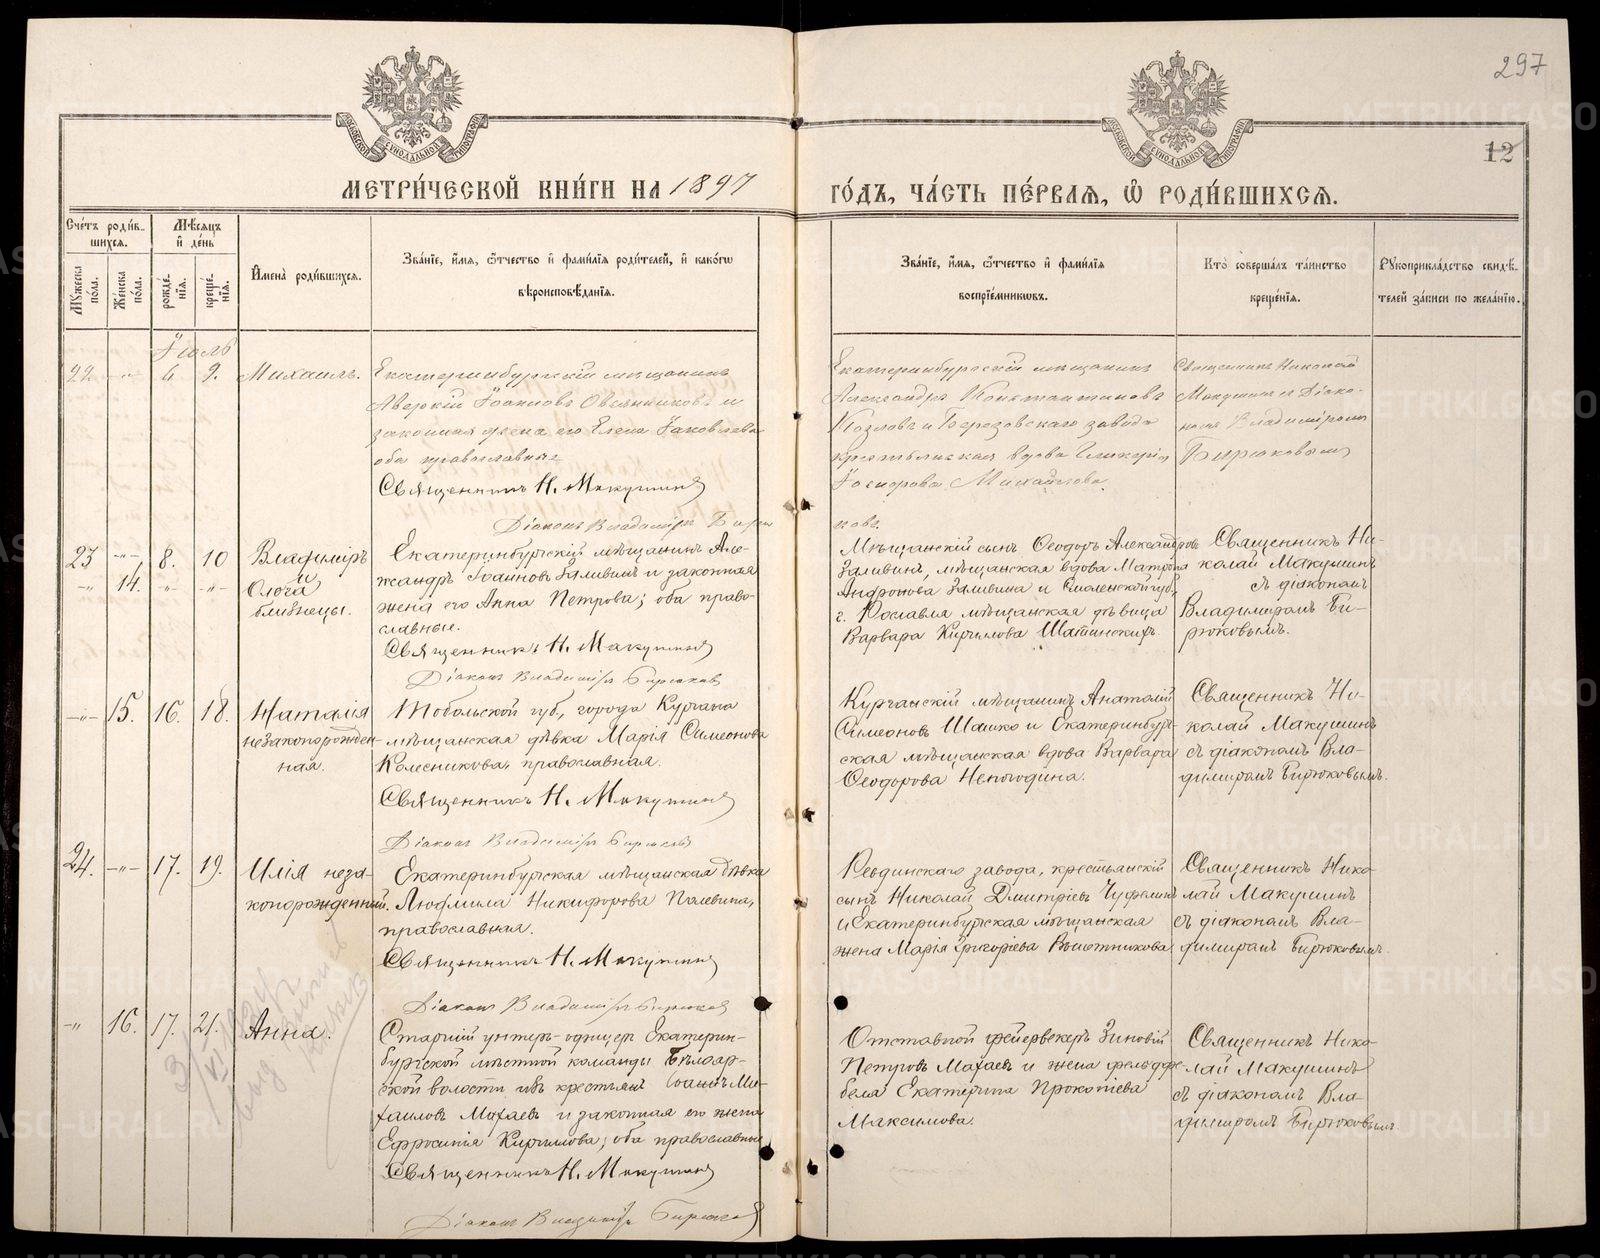 297
12
МОСКОВСКОЙ СѴНОДАЛЬНОЙ ТИПОГРАФІИ
МОСКОВСКОЙ СѴНОДАЛЬНОЙ ТИПОГРАФІИ
МЕТРИ́ЧЕСКОЙ КНИ́ГИ НА 1897
ГО́ДЪ, ЧА́СТЬ ПЕ́РВАѦ, Ѽ РОДИ́ВШИХСѦ.
Сче́тъ роди́в-
шихсѧ.
Мѣ́сѧцъ
и҆ де́нь
Му́жеска по́ла.
Же́нска по́ла.
рожде́-
нїѧ.
креще́-
нїѧ.
И҆мена̀ роди́вшихсѧ.
Зва́нїе, и҆́мѧ, ѻ҆́тчество и҆ фами́лїѧ роди́телей, и҆ како́гѡ
вѣроисповѣ́данїѧ.
Зва́нїе, и҆́мѧ, ѻ҆́тчество и҆ фами́лїѧ
воспрїе́мникѡвъ.
Кто̀ соверша́лъ та́инство
креще́нїѧ.
Рꙋкоприкла́дство свидѣ́-
телей за́писи по жела́нїю.
Іюль
22. -"- 6. 9. Михаилъ.
Екатеринбургскій мѣщанинъ
Аверкій Іоанновъ Овсянниковъ и
законная жена его Елена Іаковлева
оба православные
Священникъ Н. Макушинъ
Діаконъ Владиміръ Бирю
ковъ.
Екатеринбургскій мѣщанинъ
Александръ Константиновъ
Козловъ и Березовскаго завода
крестьянская вдова Гликерія
Михайлова.
Священникъ Николай
Макушинъ съ діако-
номъ Владиміромъ
Бирюковымъ
23 -"- 8. 10 Владиміръ
-"- 14. -"- -"- и
Ольга
близнецы.
Екатеринбургскій мѣщанинъ Але-
ксандръ Іоанновъ Заливинъ и законная
жена его Анна Петрова; оба право-
славные.
Священникъ Н. Макушинъ
Діаконъ Владиміръ Бирюковъ
Мѣщанскій сынъ Ѳеодоръ Александровъ
Заливинъ, мѣщанская вдова Матрона
Андронова Заливина и Смоленской губ.
г. Рославля мѣщанская дѣвица
Варвара Кириллова
Священникъ Ни-
колай Макушинъ
съ діакономъ
Владиміромъ Би-
рюковымъ.
-"- 15. 16. 18. Наталія
незаконорожден-
ная.
Тобольской губ., города Кургана
мѣщанская дѣвка Марія Симеонова
Колесникова, православная.
Священникъ Н. Макушинъ
Діаконъ Владиміръ Бирюковъ
Курганскій мѣщанинъ Анатолій
Симеоновъ Шашко и Екатеринбург-
ская мѣщанская вдова Варвара
Ѳеодорова Непогодина.
Священникъ Ни-
колай Макушинъ
съ діакономъ Вла-
диміромъ Бирюковымъ.
24. -"- 17. 19. Илія неза-
конорожденный.
Екатеринбургская мѣщанская дѣвка
Людмила Никифорова Полевина,
православная.
Священникъ Н. Макушинъ
Діаконъ Владиміръ Бирюковъ
Ревдинскаго завода, крестьянскій
сынъ Николай Дмитріевъ
и Екатеринбургская мѣщанская
жена Марія Григоріева
Священникъ Нико-
лай Макушинъ
съ діакономъ Вла-
диміромъ Бирюковымъ.
-"- 16. 17. 21. Анна.
Старшій унтеръ-офицеръ Екатерин-
бургской мѣстной команды
волости изъ крестьянъ Іоаннъ Ми-
хаиловъ Мохаевъ и законная его жена
Ефросинія Кириллова; оба православные
Священникъ Н. Макушинъ
Діаконъ Владиміръ Бирюковъ
Отставной фейерверкеръ Зиновій
Петровъ Махаевъ и жена фельдфе-
беля Екатерина Прокопіева
Максимова.
Священникъ Нико-
лай Макушинъ
съ діакономъ Вла-
диміромъ Бирюковымъ